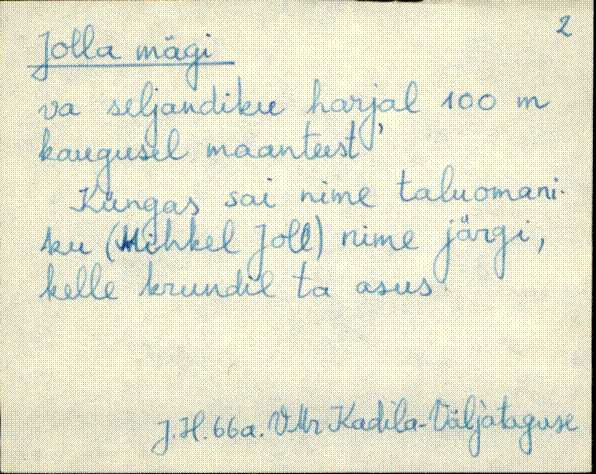 2
Jolla mägi
va seljandiku harjal 100 m
kaugusel maanteest.
Küngas sai nime taluomani-
ku (Mihkel Joll) nime järgi,
kelle krundil ta asus.
J.H. 66a. VMr Kadila-Väljataguse